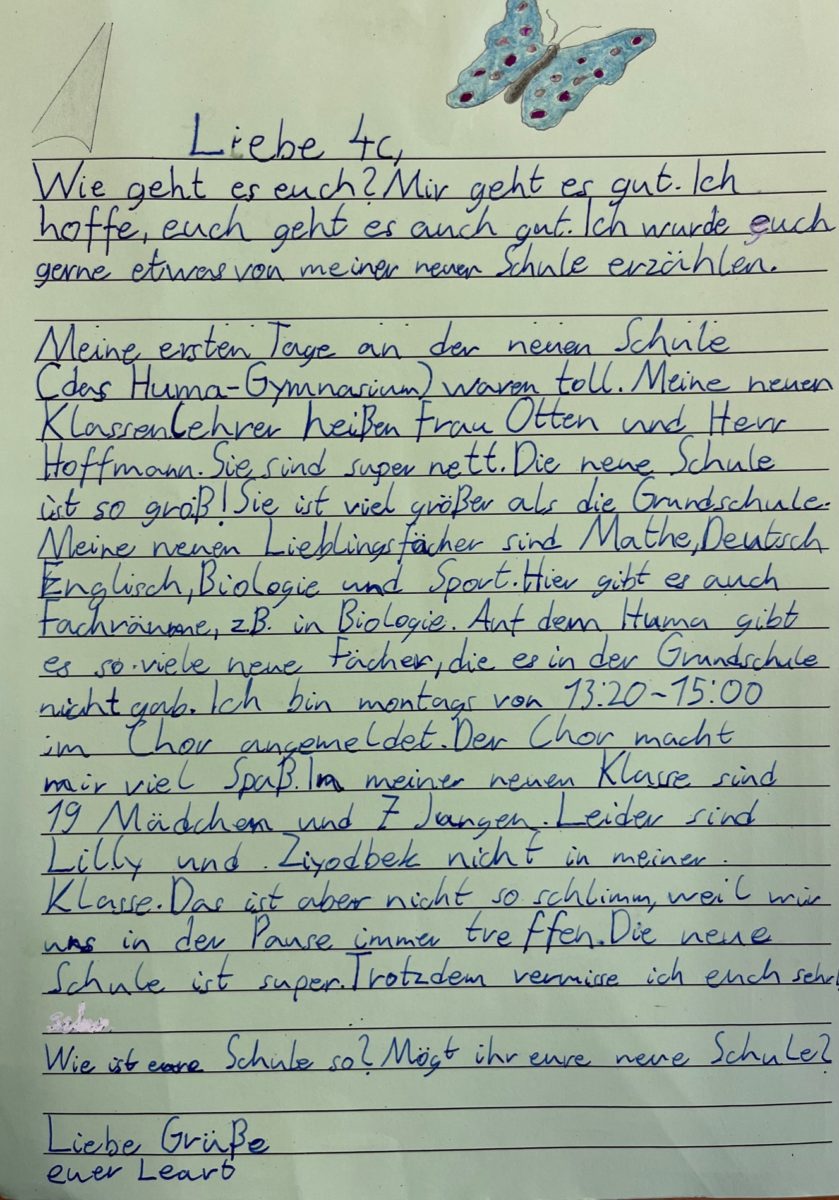 Liebe 4c,
Wie geht es euch? Mir geht es gut. Ich
hoffe, euch geht es auch gut. Ich wurde euch
gerne etwas von meiner neuen Schule erzählen.
Meine ersten Tage an der neuen Schule
(das Huma-Gymnasium) waren toll. Meine neuen
Klassenlehrer heißen Frau Otten und Herr
Hoffmann. Sie sind super nett. Die neue Schule
ist so groß! Sie ist viel größer als die Grundschule.
Meine neuen Lieblingsfächer sind Mathe, Deutsch
Englisch, Biologie und Sport. Hier gibt es auch
Fachräume, z.B. in Biologie. Auf dem Huma gibt
es so viele neue Fächer, die es in der Grundschule
nicht gab. Ich bin montags von 13:20-15:00
im Chor angemeldet. Der Chor macht
mir viel Spaß. In meiner neuen Klasse sind
19 Mädchen und 7 Jungen. Leider sind
Lilly und Ziyodbek nicht in meiner
Klasse. Das ist aber nicht so schlimm, weil wir
uns in der Pause immer treffen. Die neue
Schule ist super. Trotzdem vermisse ich euch sehr!
Wie ist eure Schule so? Mögt ihr eure neue Schule?
Liebe Grüße
euer Leart